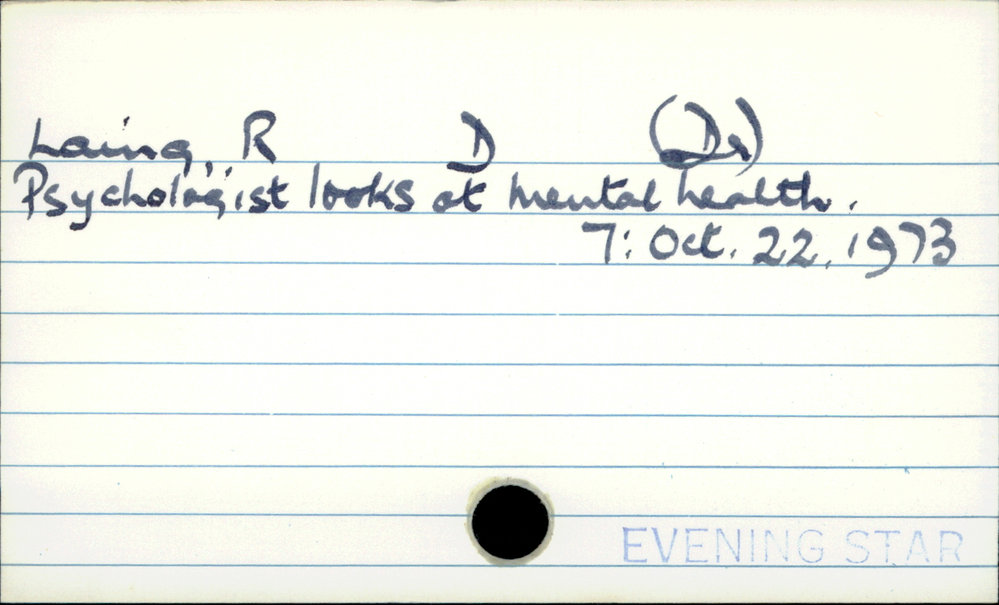 Laing, R D (Dr)
Psychologist looks at mental health.
7: Oct. 22, 1973
EVENING STAR